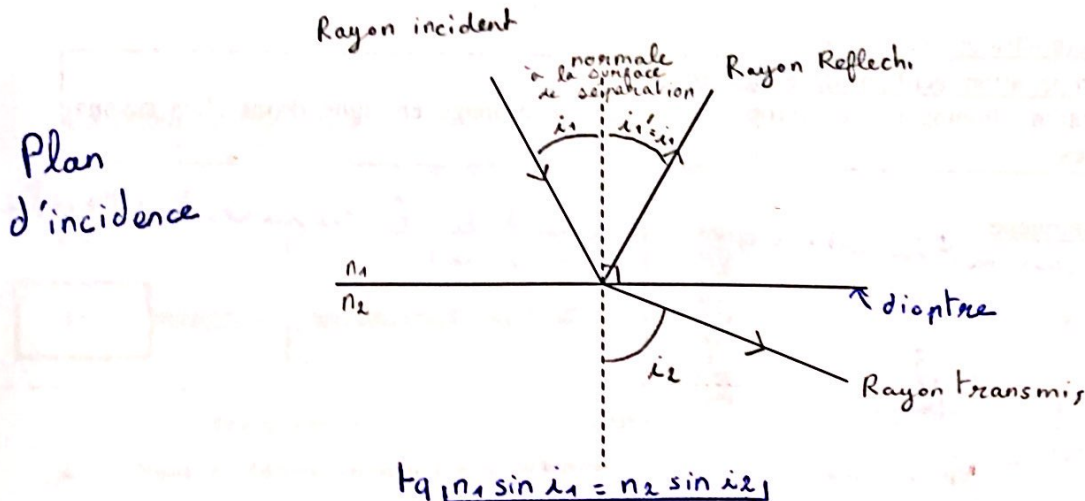 Rayon incident
normale
à la surface
de séparation
Rayon Reflechi
i1
i1'=i1
Plan
d'incidence
n1
n2
dioptre
i2
Rayon transmis
tq n1 sin i1 = n2 sin i2